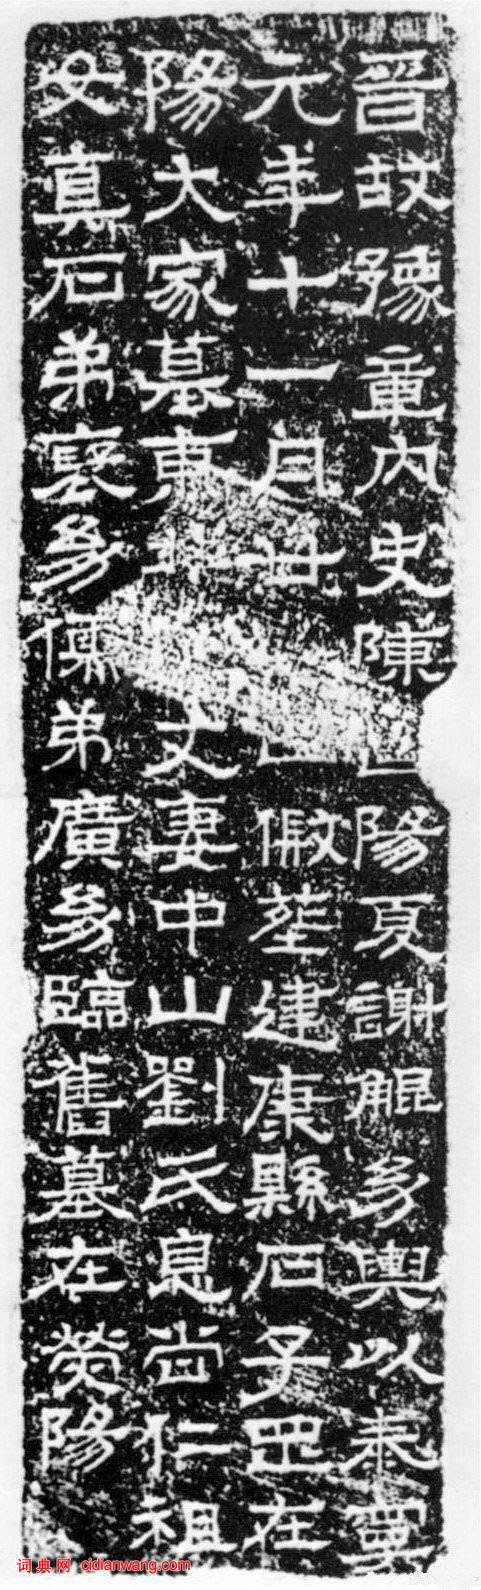 晉故豫章內史陳陽夏謝鯤幼輿以泰寧
元年十一月廿亡假葬建康縣石子罡在
陽大家墓東北丈妻中山劉氏息尚仁祖
女真石弟褒幼儒弟廣幼臨舊墓在熒陽
词典网 cidianwang.com